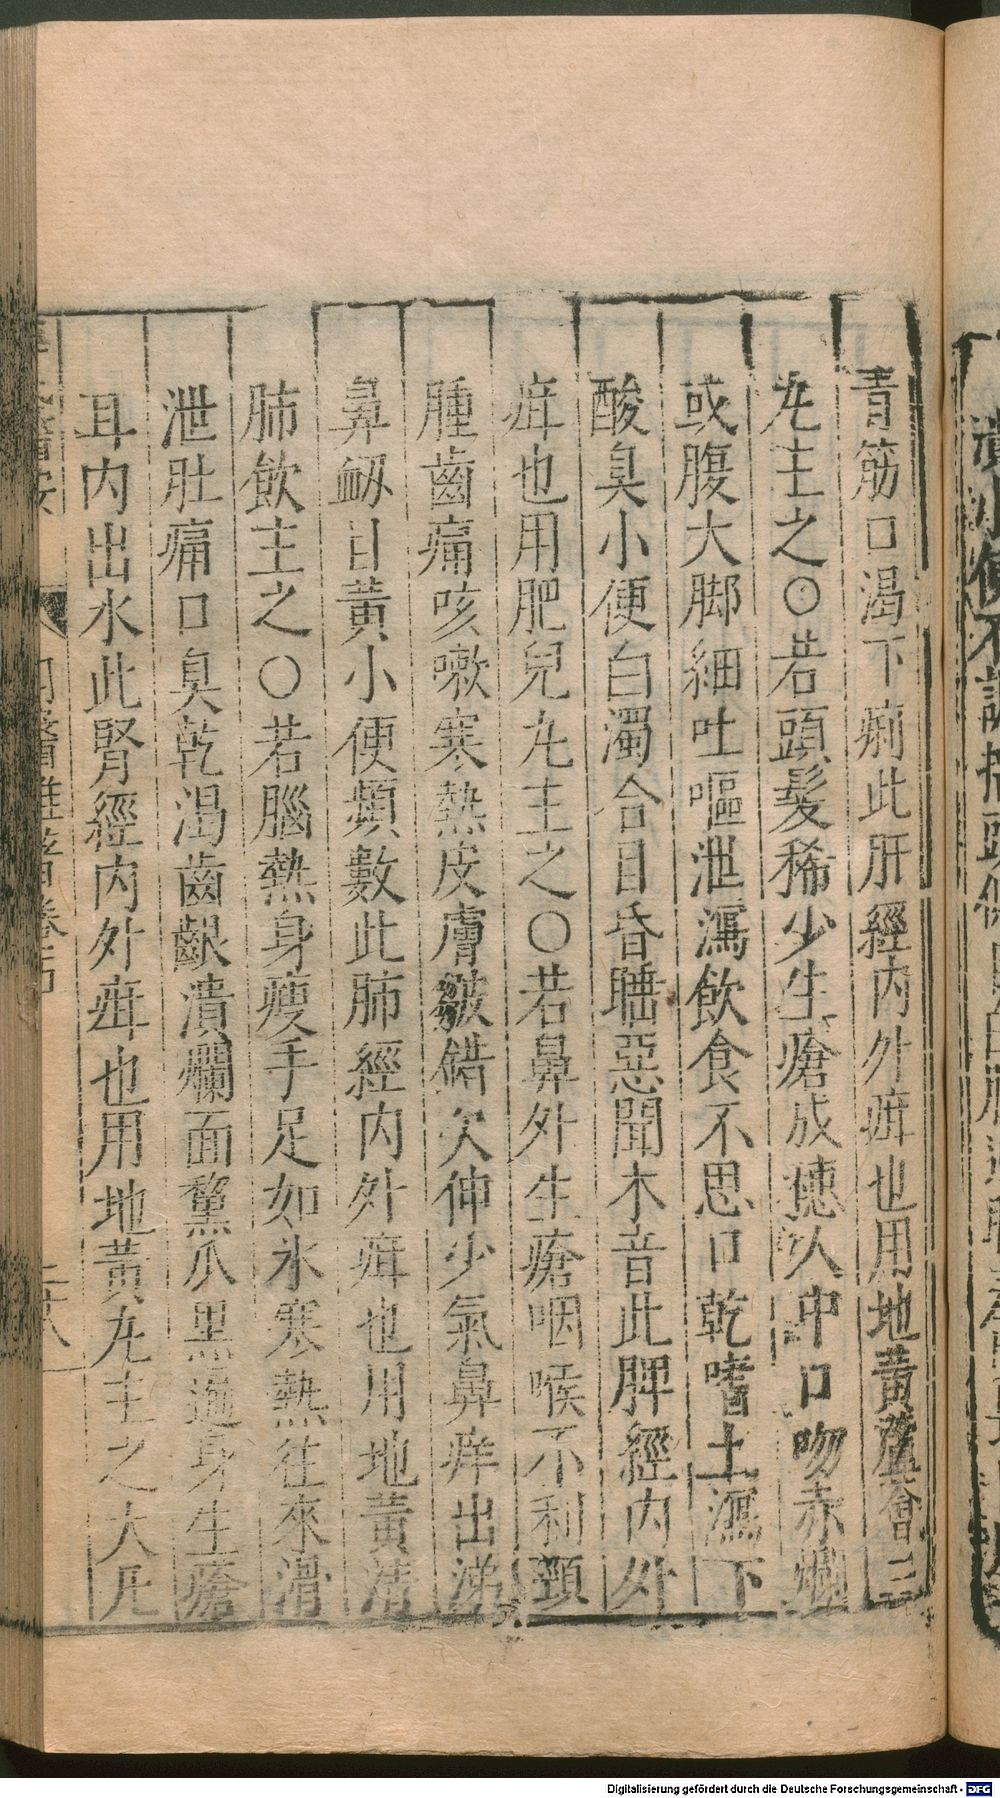 青筋口渴下痢此肝經内外疳也用地黃蘆薈二
丸主之○若頭髮稀少生瘡成穗人中口吻赤爛
或腹大脚細吐嘔泄瀉飲食不思口乾嗜土瀉下
酸臭小便白濁合目昏睡惡聞木音此脾經内外
疳也用肥兒丸主之○若鼻外生瘡咽喉不利頸
腫齒痛咳嗽寒熱皮膚皴錯欠伸少氣鼻痒出涕
鼻衂目黃小便頻數此肺經内外疳也用地黃清
肺飲主之○若腦熱身瘦手足如氷寒熱往來滑
泄肚痛口臭乾渴齒齦潰爛面黧爪黑遍身生瘡
耳内出水此腎經内外疳也用地黃丸主之大凡
Digitalisierung gefördert durch die Deutsche Forschungsgemeinschaft - DFG